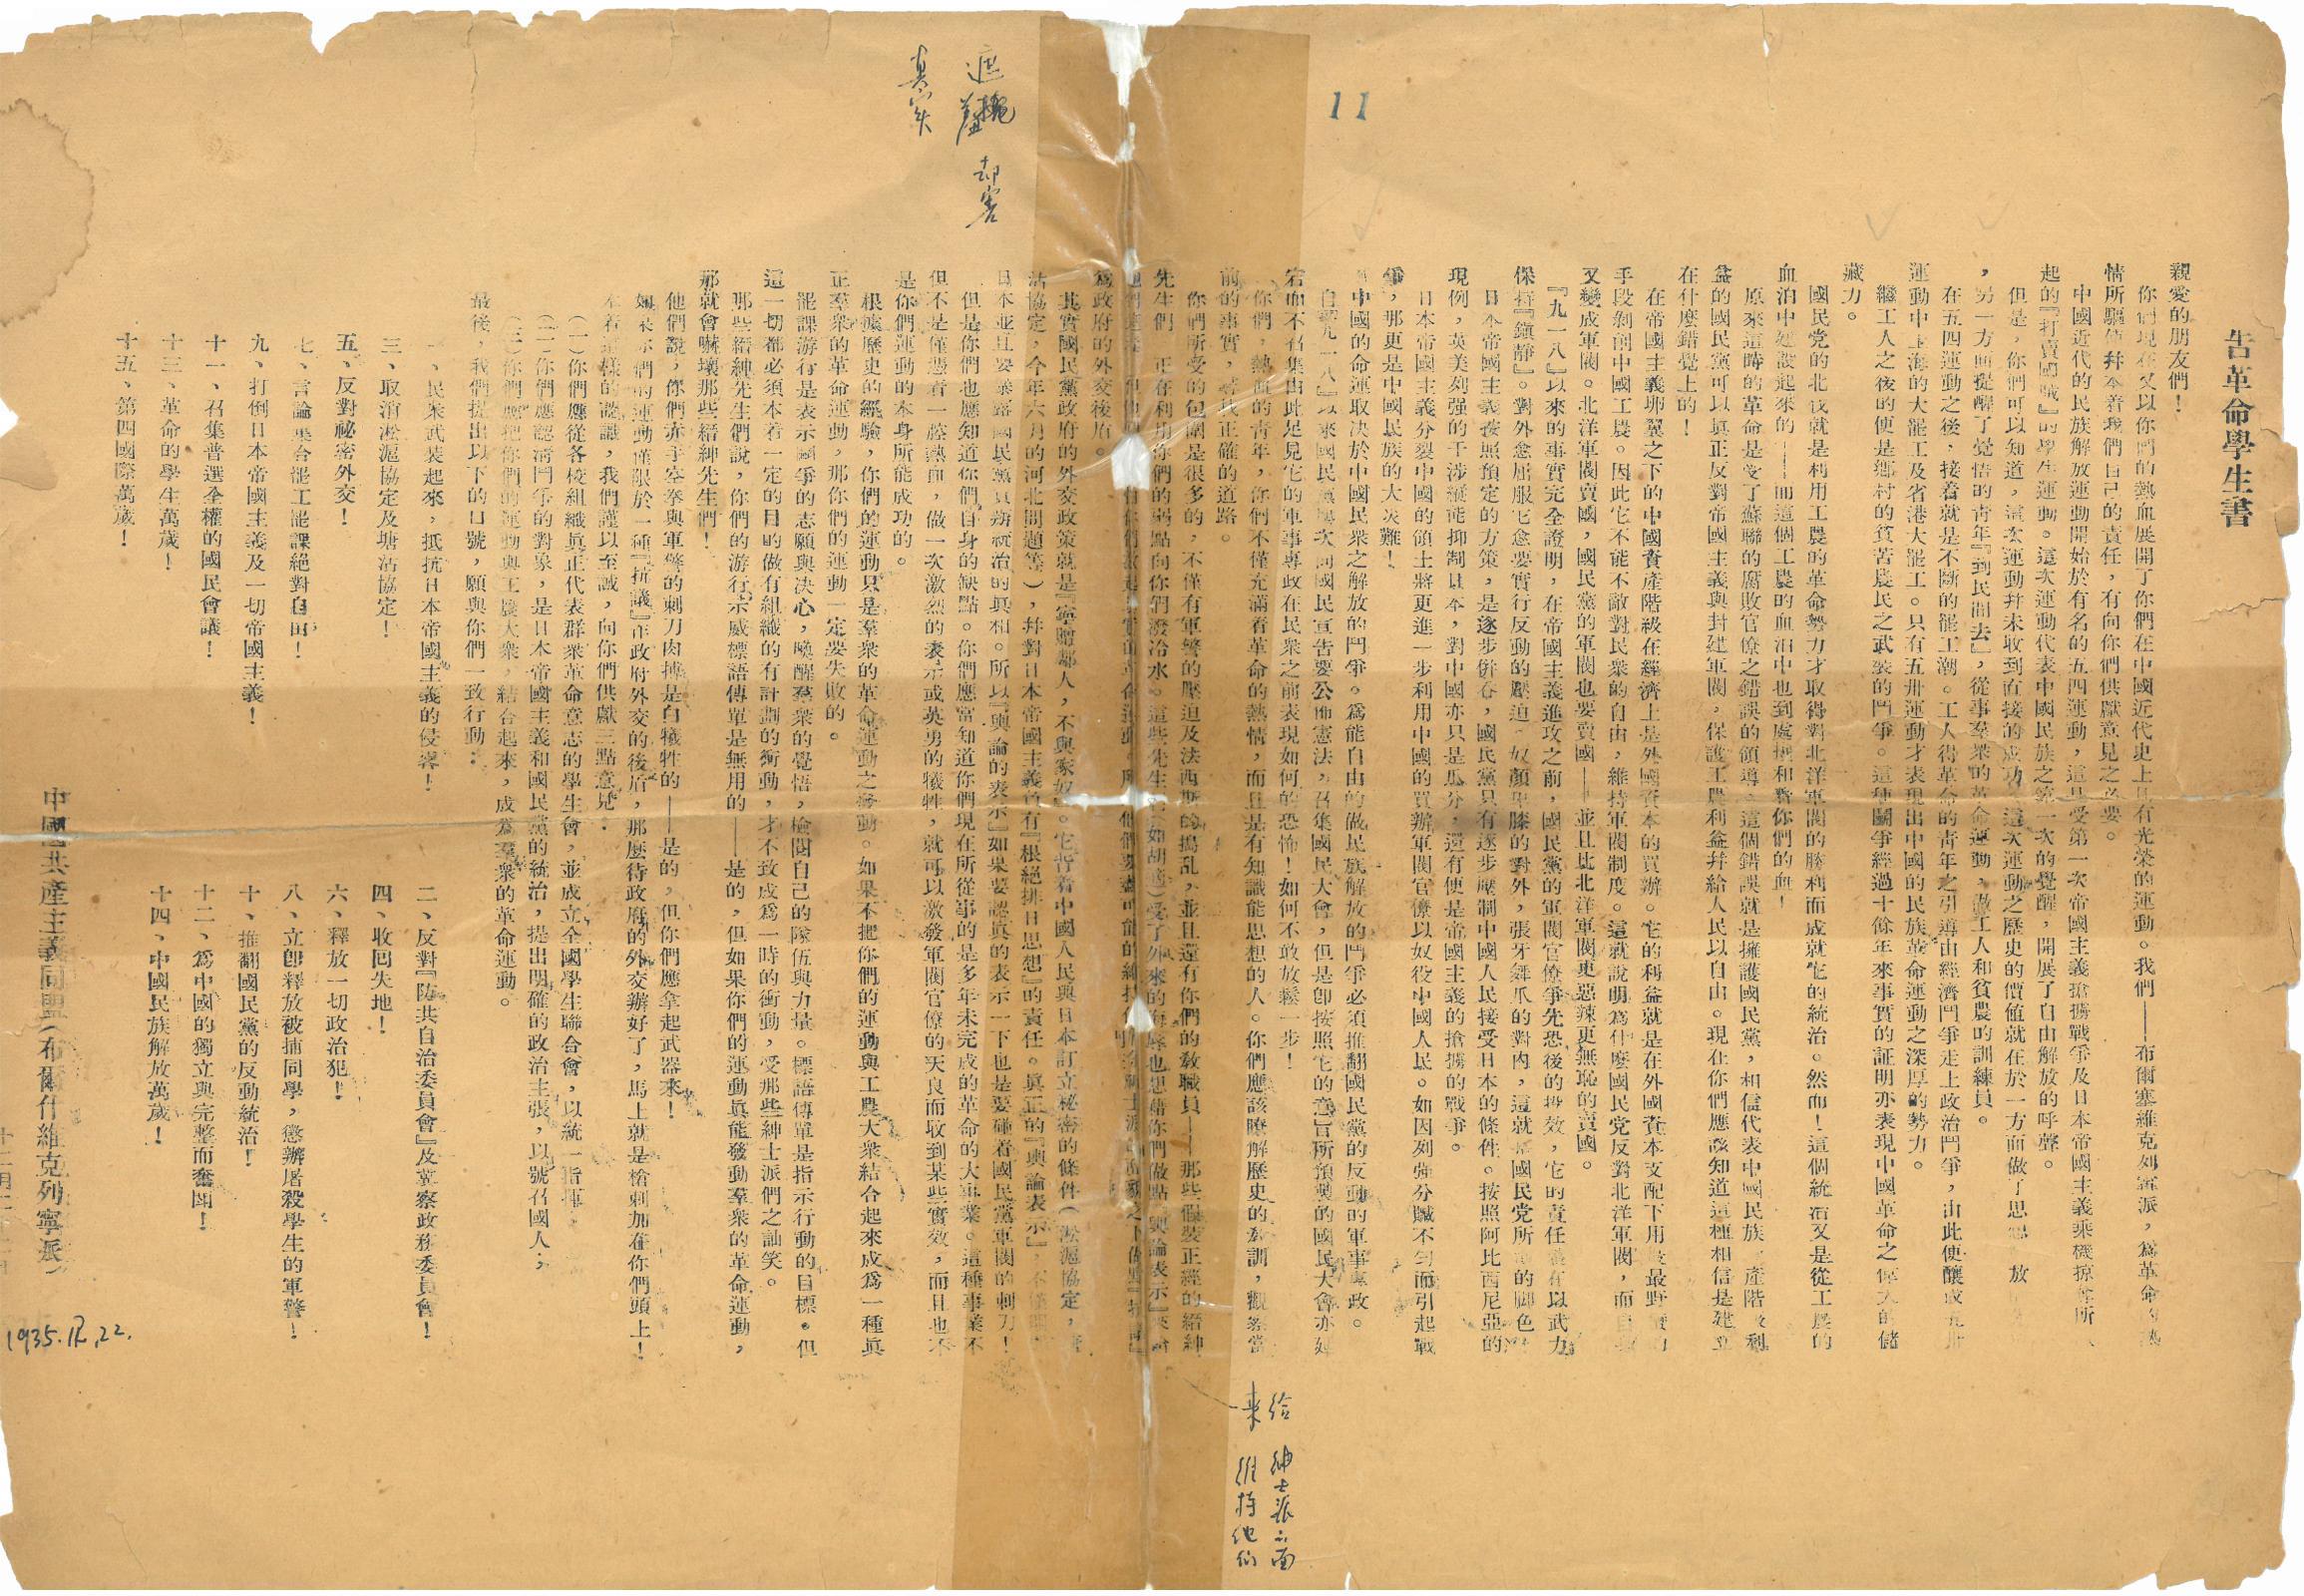 告革命學生書
親愛的朋友們！
你們現在又以你們的熱血展開了你們在中國近代史上具有光榮的運動。我們——布爾塞維克列寧派，爲革命的熱
情所驅使并本着我們自己的責任，有向你們供獻意見之必要。
中國近代的民族解放運動開始於有名的五四運動，這是受第一次帝國主義搶擄戰爭及日本帝國主義乘機掠奪所
起的『打賣國賊』的學生運動。這次運動代表中國民族之第一次的覺醒，開展了自由解放的呼聲。
但是，你們可以知道，這次運動并未收到直接的成功，這次運動之歷史的價值就在於一方面做了思想 放
，另一方面提醒了覺悟的青年『到民間去』，從事羣衆的革命運動，做工人和貧農的訓練員。
在五四運動之後，接着就是不斷的罷工潮。工人得革命的青年之引導由經濟鬥爭走上政治鬥爭，由此便釀成五卅
運動中上海的大罷工及省港大罷工。只有五卅運動才表現出中國的民族革命運動之深厚的勢力。
繼工人之後的便是鄉村的貧苦農民之武裝的鬥爭。這種鬭爭經過十餘年來事實的証明亦表現中國革命之偉大的儲
藏力。
國民党的北伐就是利用工農的革命勢力才取得對北洋軍閥的勝利而成就它的統治。然而！這個統治又是從工農的
血泊中建設起來的——而這個工農的血泊中也到處攙和着你們的血！
原來這時的革命是受了蘇聯的腐敗官僚之錯誤的領導。這個錯誤就是擁護國民黨，相信代表中國民族 產階級利
益的國民黨可以真正反對帝國主義與封建軍閥，保護工農利益并給人民以自由。現在你們應該知道這種相信是建立
在什麼錯覺上的！
在帝國主義卵翼之下的中國資產階級在經濟上是外國資本的買辦。它的利益就是在外國資本支配下用最野蠻的
手段剝削中國工農。因此它不能不敵對民衆的自由，維持軍閥制度。這就說明爲什麼國民党反對北洋軍閥，而自
又變成軍閥。北洋軍閥賣國，國民黨的軍閥也要賣國——並且比北洋軍閥更惡辣更無恥的賣國。
『九一八』以來的事實完全證明，在帝國主義進攻之前，國民黨的軍閥官僚爭先恐後的投效，它的責任僅在以武力
保持『鎮靜』。對外愈屈服它愈要實行反動的壓迫。奴顏卑膝的對外，張牙舞爪的對内，這就 國民党所 的脚色
日本帝國主義按照預定的方策，是逐步併吞，國民黨只有逐步壓制中國人民接受日本的條件。按照阿比西尼亞的
現例，英美列强的干涉縱能抑制日本，對中國亦只是瓜分，還有便是帝國主義的搶擄的戰爭。
日本帝國主義分裂中國的領土將更進一步利用中國的買辦軍閥官僚以奴役中國人民。如因列强分贓不勻而引起戰
爭，那更是中國民族的大災難！
中國的命運取决於中國民衆之解放的鬥爭。爲能自由的做民族解放的鬥爭必須推翻國民黨的反動的軍事專政。
自『九一八』以來國民黨幾次向國民宣告要公佈憲法，召集國民大會，但是卽按照它的意旨所預製的國民大會亦延
宕而不召集由此足見它的軍事專政在民衆之前表現如何的恐怖！如何不敢放鬆一步！
你們，熱血的青年，你們不僅充滿着革命的熱情，而且是有知識能思想的人。你們應該瞭解歷史的敎訓，觀察當
前的事實，尋找正確的道路。
你們所受的包圍是很多的，不僅有軍警的壓迫及法西斯的搗亂，並且還有你們的敎職員——那些假裝正經的縉紳
先生們 正在利用你們的弱點向你們潑冷水。這些先生們（如胡適）受了外來的侮辱也想藉你們做點『輿論表示』來
爲政府的外交後盾。
其實國民黨政府的外交政策就是『寧贈鄰人，不與家奴』。它背着中國人民與日本訂立秘密的條件（淞滬協定，塘
沽協定，今年六月的河北問題等），幷對日本帝國主義負有『根絕排日思想』的責任。眞正的『輿論表示』，不僅
日本並且要暴露國民黨賣辦統治的眞相。所以『輿論的表示』如果要認眞的表示一下也是要碰着國民黨軍閥的刺刀！
但是你們也應知道你們自身的缺點。你們應當知道你們現在所從事的是多年未完成的革命的大事業。這種事業不
但不是僅憑着一股熱血，做一次激烈的表示或英勇的犧牲，就可以激發軍閥官僚的天良而收到某些實效，而且也不
是你們運動的本身所能成功的。
根據歷史的經驗，你們的運動只是羣衆的革命運動之發動。如果不把你們的運動與工農大衆結合起來成爲一種眞
正羣衆的革命運動，那你們的運動一定要失敗的。
罷課游行是表示國爭的志願與决心，喚醒羣衆的覺悟，檢閱自己的隊伍與力量。標語傳單是指示行動的目標。但
這一切都必須本着一定的目的做有組織的有計劃的衝動，才不致成爲一時的衝動，受那些紳士派們之訕笑。
那些縉紳先生們說，你們的游行示威標語傳單是無用的——是的，但如果你們的運動眞能發動羣衆的革命運動，
那就會嚇壞那些縉紳先生們！
他們說，你們赤手空拳與軍警的刺刀肉搏是白犧牲的——是的，但你們應拿起武器來！
如果你們的運動僅限於一種『抗議』作政府外交的後盾，那麼待政府的外交辦好了，馬上就是槍刺加在你們頭上！
本着這樣的認識，我們謹以至誠，向你們供獻三點意見：
（一）你們應從各校組織眞正代表群衆革命意志的學生會，並成立全國學生聯合會，以統一指揮；
（二）你們應認清鬥爭的對象，是日本帝國主義和國民黨的統治，提出明確的政治主張，以號召國人；
（三）你們應把你們的運動與工農大衆，結合起來，成爲羣衆的革命運動。
最後，我們提出以下的口號，願與你們一致行動：
一、民衆武裝起來，抵抗日本帝國主義的侵畧！
二、反對『防共自治委員會』及冀察政務委員會！
三、取消淞滬協定及塘沽協定！
四、收囘失地！
五、反對祕密外交！
六、釋放一切政治犯！
七、言論集合罷工罷課絕對自由！
八、立卽釋放被捕同學，懲辦屠殺學生的軍警！
九、打倒日本帝國主義及一切帝國主義！
十、推翻國民黨的反動統治！
十一、召集普選全權的國民會議！
十二、爲中國的獨立與完整而奮鬥！
十三、革命的學生萬歲！
十四、中國民族解放萬歲！
十五、第四國際萬歲！
中國共產主義同盟（布爾什維克列寧派）
11
遮掩
真实
却害
给 紳士派
来 維持他们